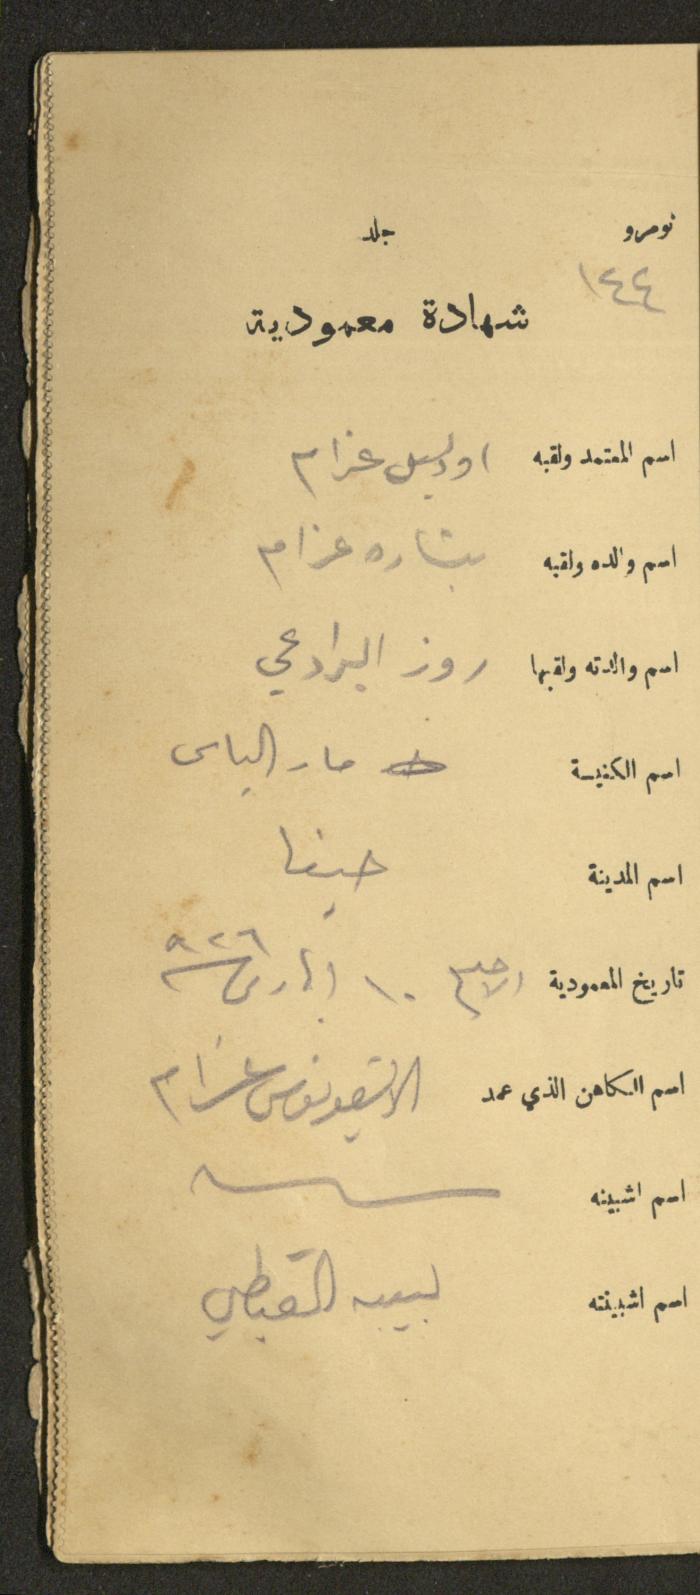 نومرو جلد
١٤٤
شهادة معمودية
اسم المعتمد ولقبه اوديل عزام
اسم والده ولقبه بشاره عزام
اسم والدته ولقبها روز البرادعي
اسم الكنيسة مار الياس
اسم المدينة حيفا
تاريخ المعمودية الاحد ١٠ ٩٢٦
اسم الكاهن الذي عمد عزام
اسم اشبينه
اسم اشبينته لبيبه القباطي